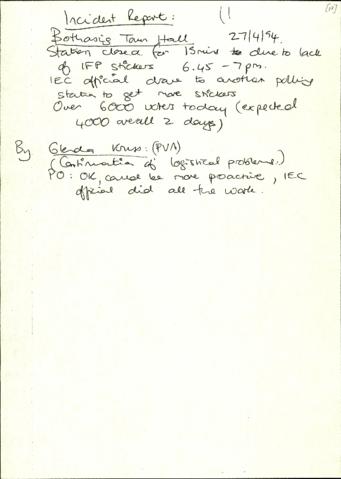 Incident Report: (1
Bothasig Town Hall 27/4/94.
Station closed for 15mins to due to lack
of IFP stickers 6.45 - 7pm.
IEC official drove to another polling
station to get more stickers
Over 6000 votes today (expected
4000 overall 2 days)
By Glenda Kruss: (PVA)
(Continuation of logistical problems.)
PO: OK, could be more proactive, IEC
official did all the work.